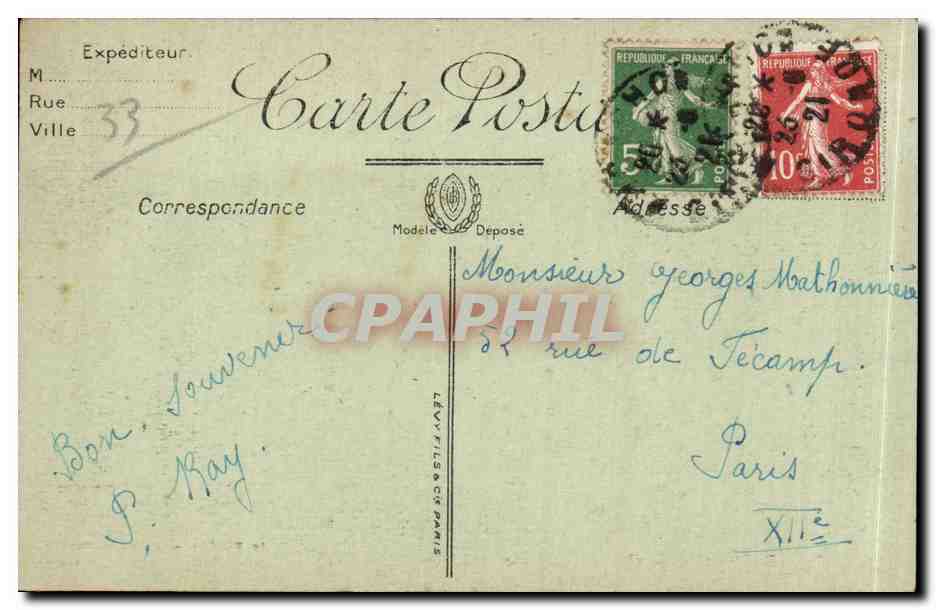 Expéditeur.
M
Rue
Ville
33
Carte Posta
RÉPUBLIQUE FRANÇAISE
5
RÉPUBLIQUE FRANÇAISE
10
POSTES
Correspondance
Adresse
Modèle Déposé
Monsieur Georges Mathonnière
52 rue de Fécamp.
Paris
XIIe
Bon Souvenir
P. Ray.
LÉVY FILS & Cie PARIS
CPAPHIL